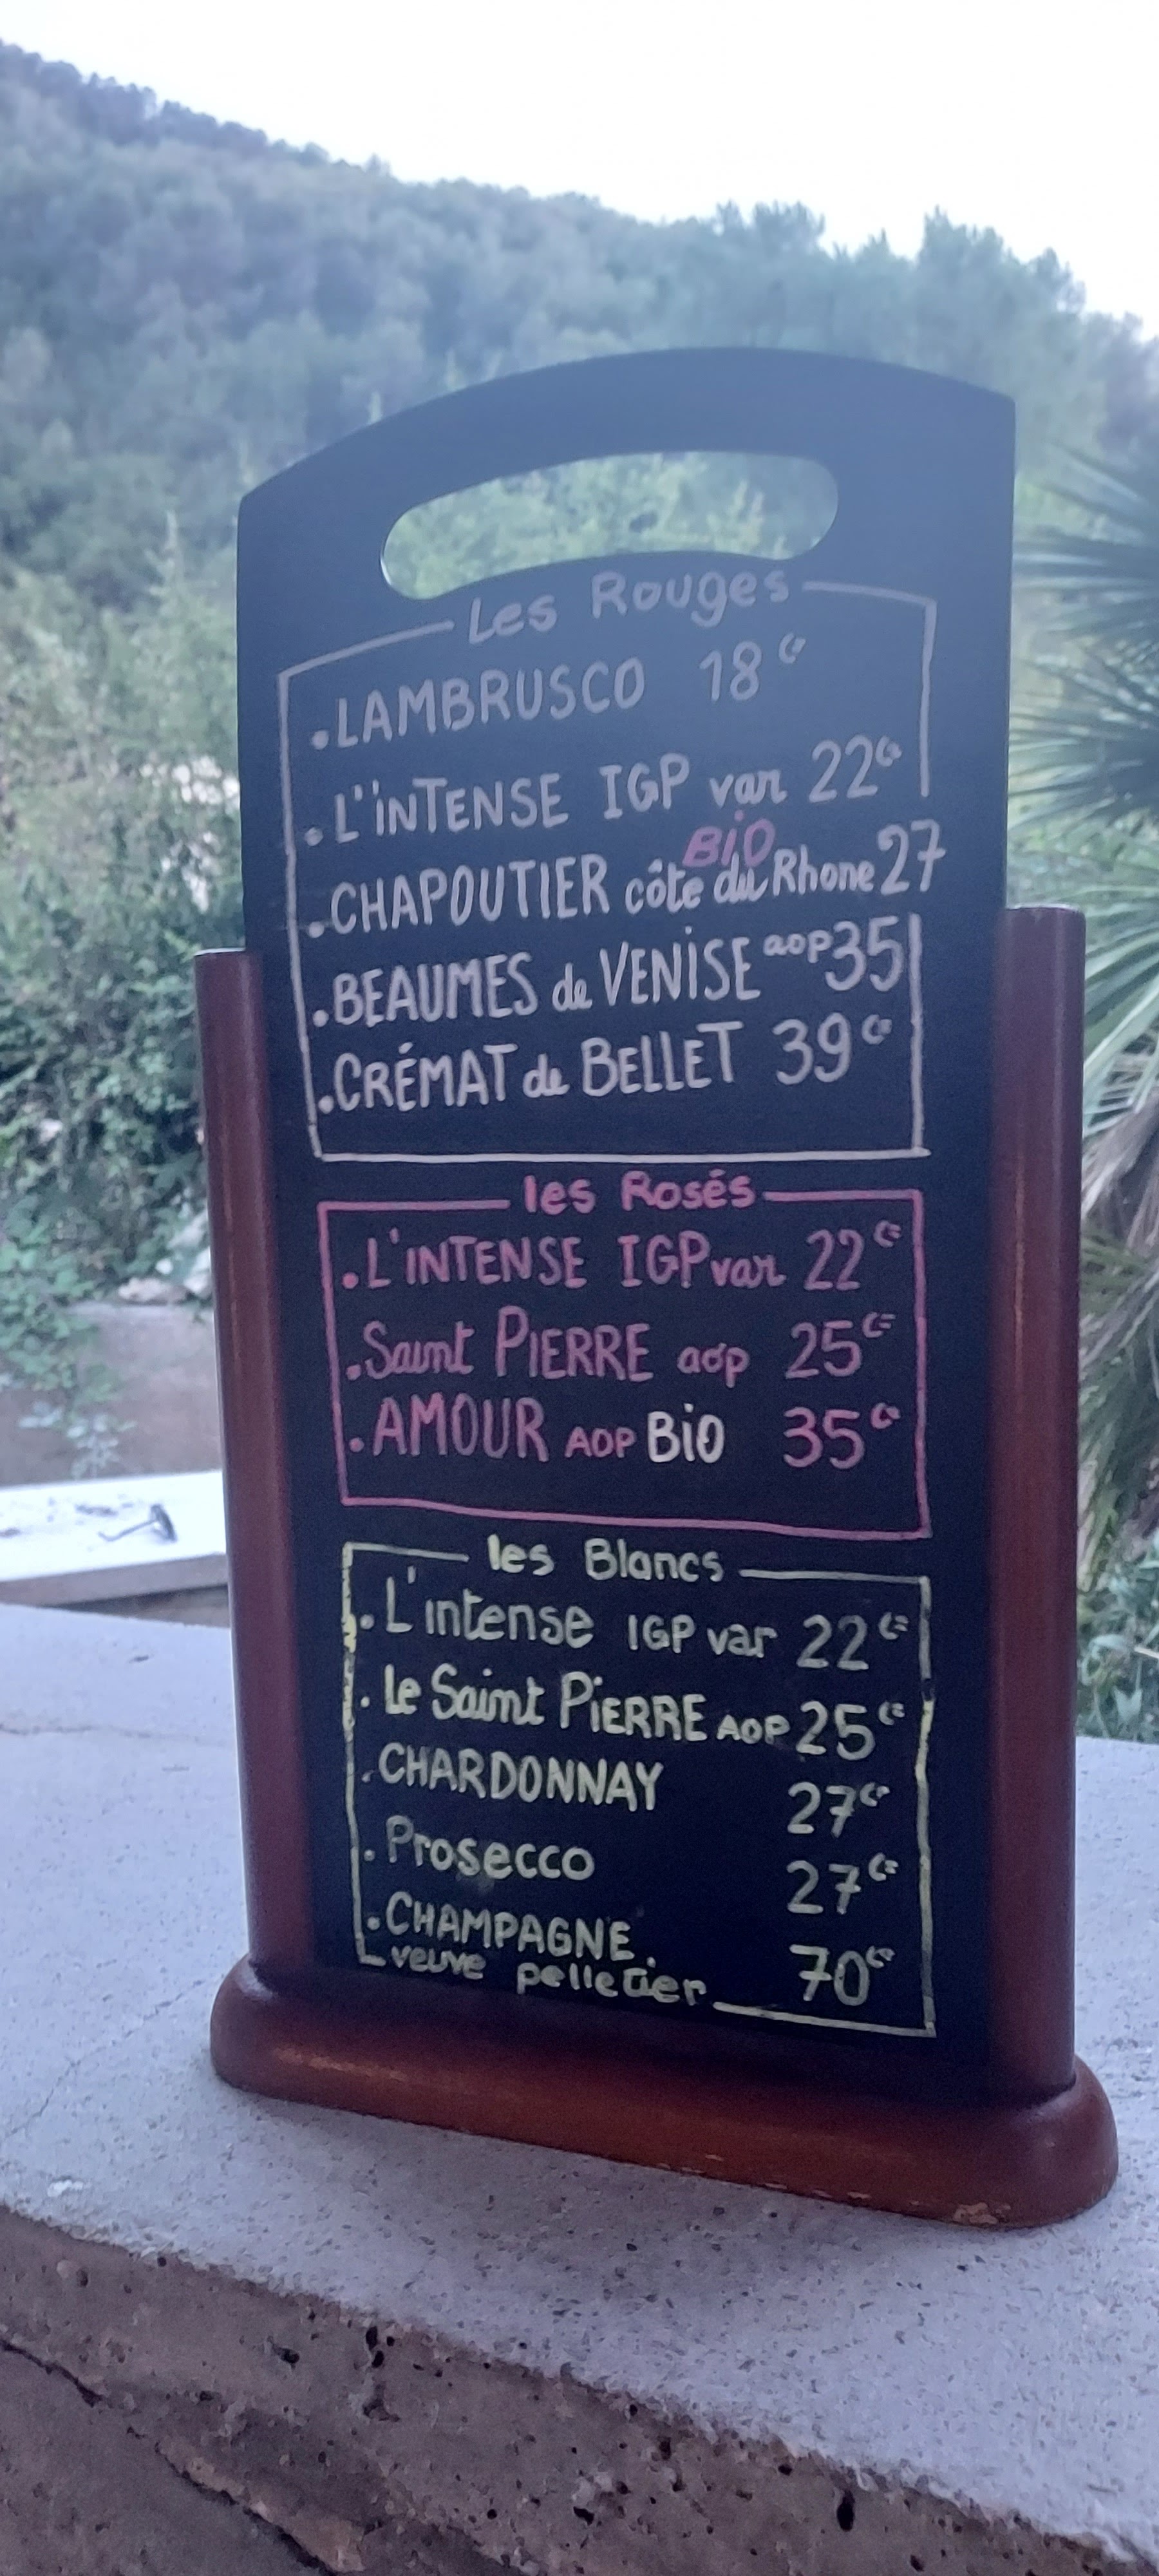 Les Rouges
.LAMBRUSCO 18€
.L'iNTENSE IGP var 22€
BiO
.CHAPOUTIER côte du Rhone 27
.BEAUMES de VENiSE aop 35
.CRÉMAT de BELLET 39€
les Rosés
.L'iNTENSE IGP var 22€
.Saint PiERRE aop 25€
.AMOUR AOP BiO 35€
les Blancs
.L'intense IGP var 22€
.le Saint PiERRE AOP 25€
.CHARDONNAY 27€
.Prosecco 27€
.CHAMPAGNE. 70€
veuve pelletier